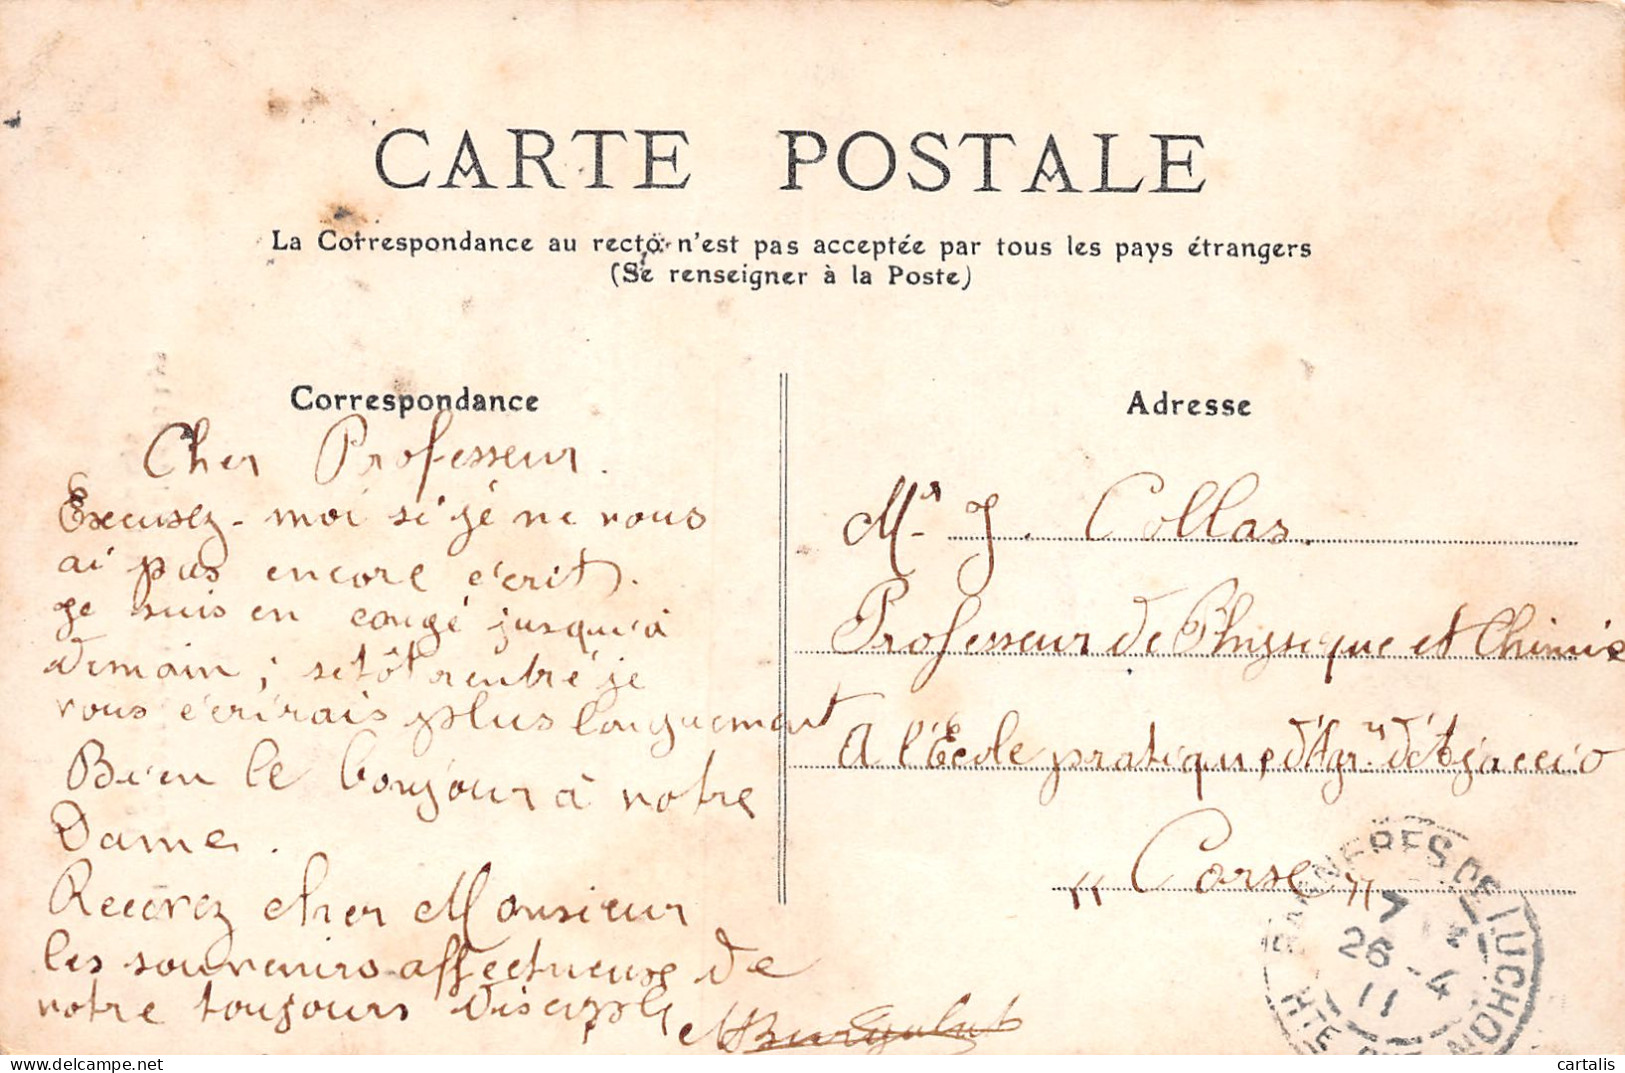 CARTE POSTALE
La Correspondance au recto n'est pas acceptée par tous les pays étrangers
(Se renseigner à la Poste)
Correspondance
Cher Professeur.
Excusez-moi si je ne vous
ai pas encore écrit.
Je suis en congé jusqu'à
demain; sitôt rentré je
vous écrirais plus longuement
Bien le bonjour à votre
Dame.
Recevez cher Monsieur
les souvenirs affectueuse de
votre toujours disciple
Adresse
Mr J. Collas.
Professeur de Physique et Chimie
A l'École pratique d'Agr. d'Ajaccio
"Corse"
BAGNERES DE LUCHON
26 -4
11
HTE
cartalis